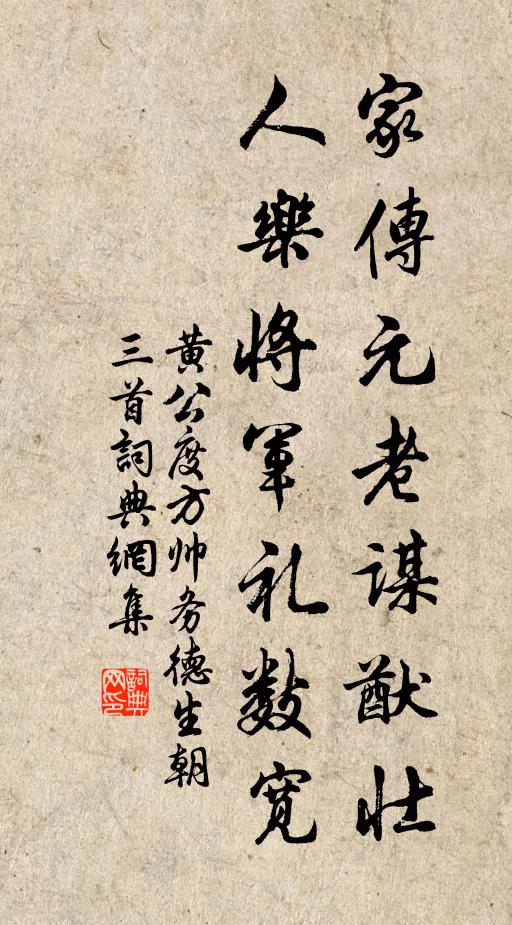 家傳元老謀猷壯
人樂將軍礼數寬
黃公度方帅务德生朝
三首詞典網集
詞典网印